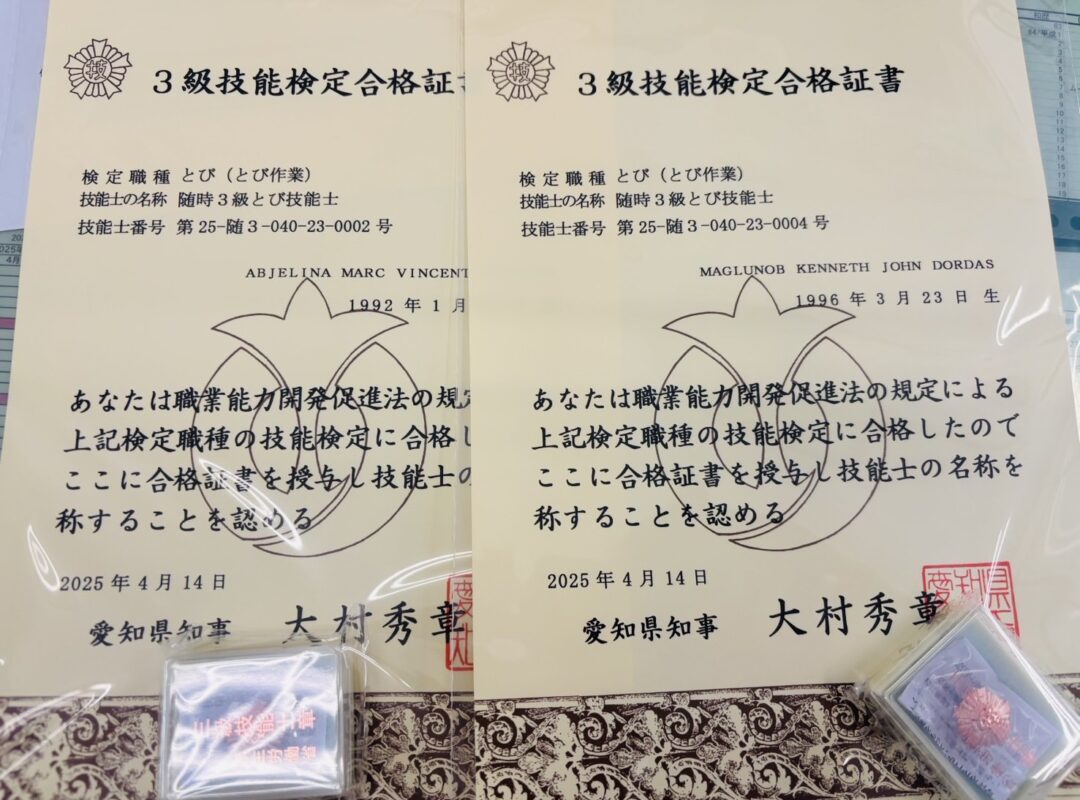 技
３級技能検定合格証
検定職種 とび（とび作業）
技能士の名称 随時３級とび技能士
技能士番号 第 25-随３-040-23-0002 号
ABJELINA MARC VINCENT
1992 年 1 月
あなたは職業能力開発促進法の規定
上記検定職種の技能検定に合格し
ここに合格証書を授与し技能士の
称することを認める
2025 年 4 月 14 日
愛知県知事 大村秀章
三級技能士章
技
３級技能検定合格証書
検定職種 とび（とび作業）
技能士の名称 随時３級とび技能士
技能士番号 第 25-随３-040-23-0004 号
MAGLUNOB KENNETH JOHN DORDAS
1996 年 3 月 23 日 生
あなたは職業能力開発促進法の規定による
上記検定職種の技能検定に合格したので
ここに合格証書を授与し技能士の名称を
称することを認める
2025 年 4 月 14 日
愛知県知事 大村秀章
愛知県